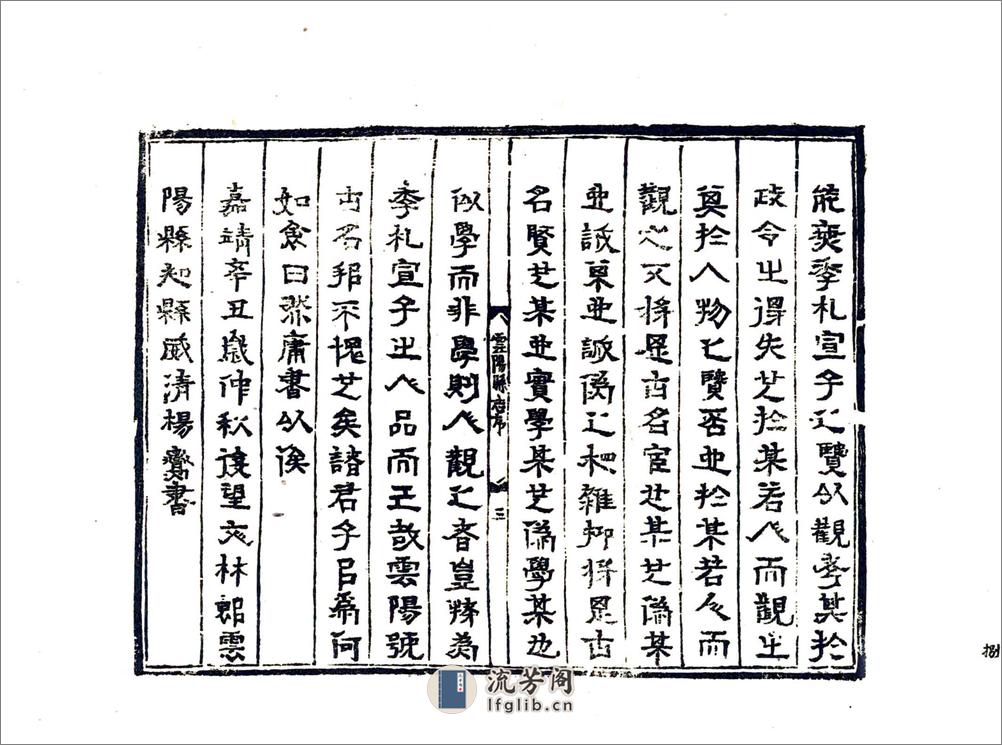 能爽季札宣子之覽以觀孝其於
政令之得失其於某若人而觀之
莫於人物之賢否其於某若人而
觀之又將曰古名宦也某其偽某
也誠某也誠偽之相雜抑將曰古
名賢也某也實學某也偽學某也
雲陽縣志序
三
似學而非學則人觀之者豈特為
季札宣子之人品而已哉雲陽號
古名邦不愧也矣諸君子以為何
如僉曰然庸書以俟
嘉靖辛丑歲仲秋後望文林郎雲
陽縣知縣咸清楊鸞書
捌
流芳阁
lfglib.cn